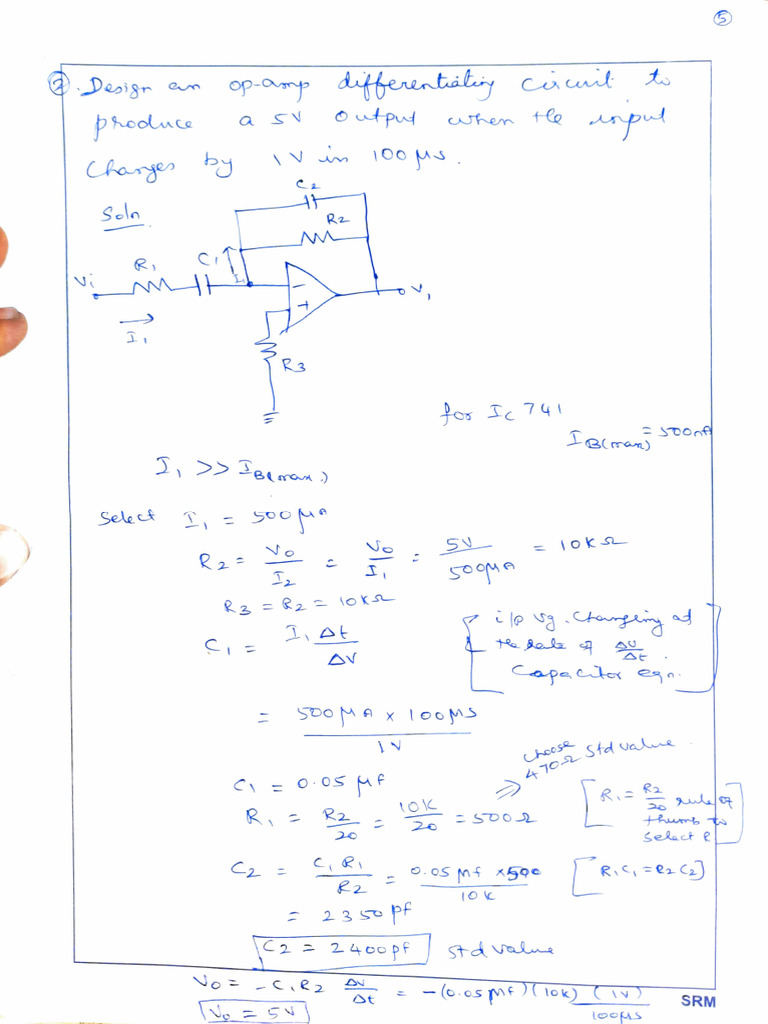 5
2. Design an op-amp differentiating circuit to
produce a 5V output when the input
changes by 1V in 100μs.
Soln.
C2
R2
C1
R1
Vi
I1
V1
-
+
R3
for Ic 741
IB(max) = 500nA
I1 >> IB(max)
Select I1 = 500μA
R2 = Vo/I2 = Vo/I1 = 5V/500μA = 10KΩ
R3 = R2 = 10KΩ
C1 = I1 Δt/ΔV [i/p vg. changing at
the rate of ΔV/Δt.
Capacitor eqn.]
= 500μA x 100μs/1V
choose std value.
470Ω
C1 = 0.05 μf
R1 = R2/20 = 10K/20 = 500Ω ⇒ [R1 = R2/20 rule of
thumb to
select R]
C2 = C1 R1/R2 = 0.05 μf x 500/10K [R1C1 = R2C2]
= 2350 pf
C2 = 2400pf std value
Vo = -C1R2 ΔV/Δt = -(0.05μf)(10K) (1V)/100μs
Vo = 5V
SRM